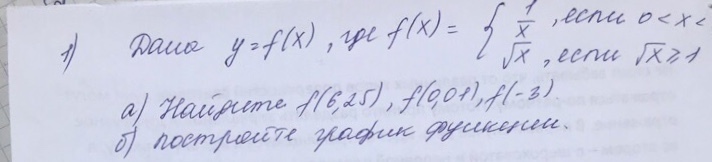 1) Дана y=f(x), где f(x) = { 1/x, если 0<x<
√x, если √x ≥ 1
а) Найдите f(6,25), f(0,01), f(-3)
б) постройте график функции.